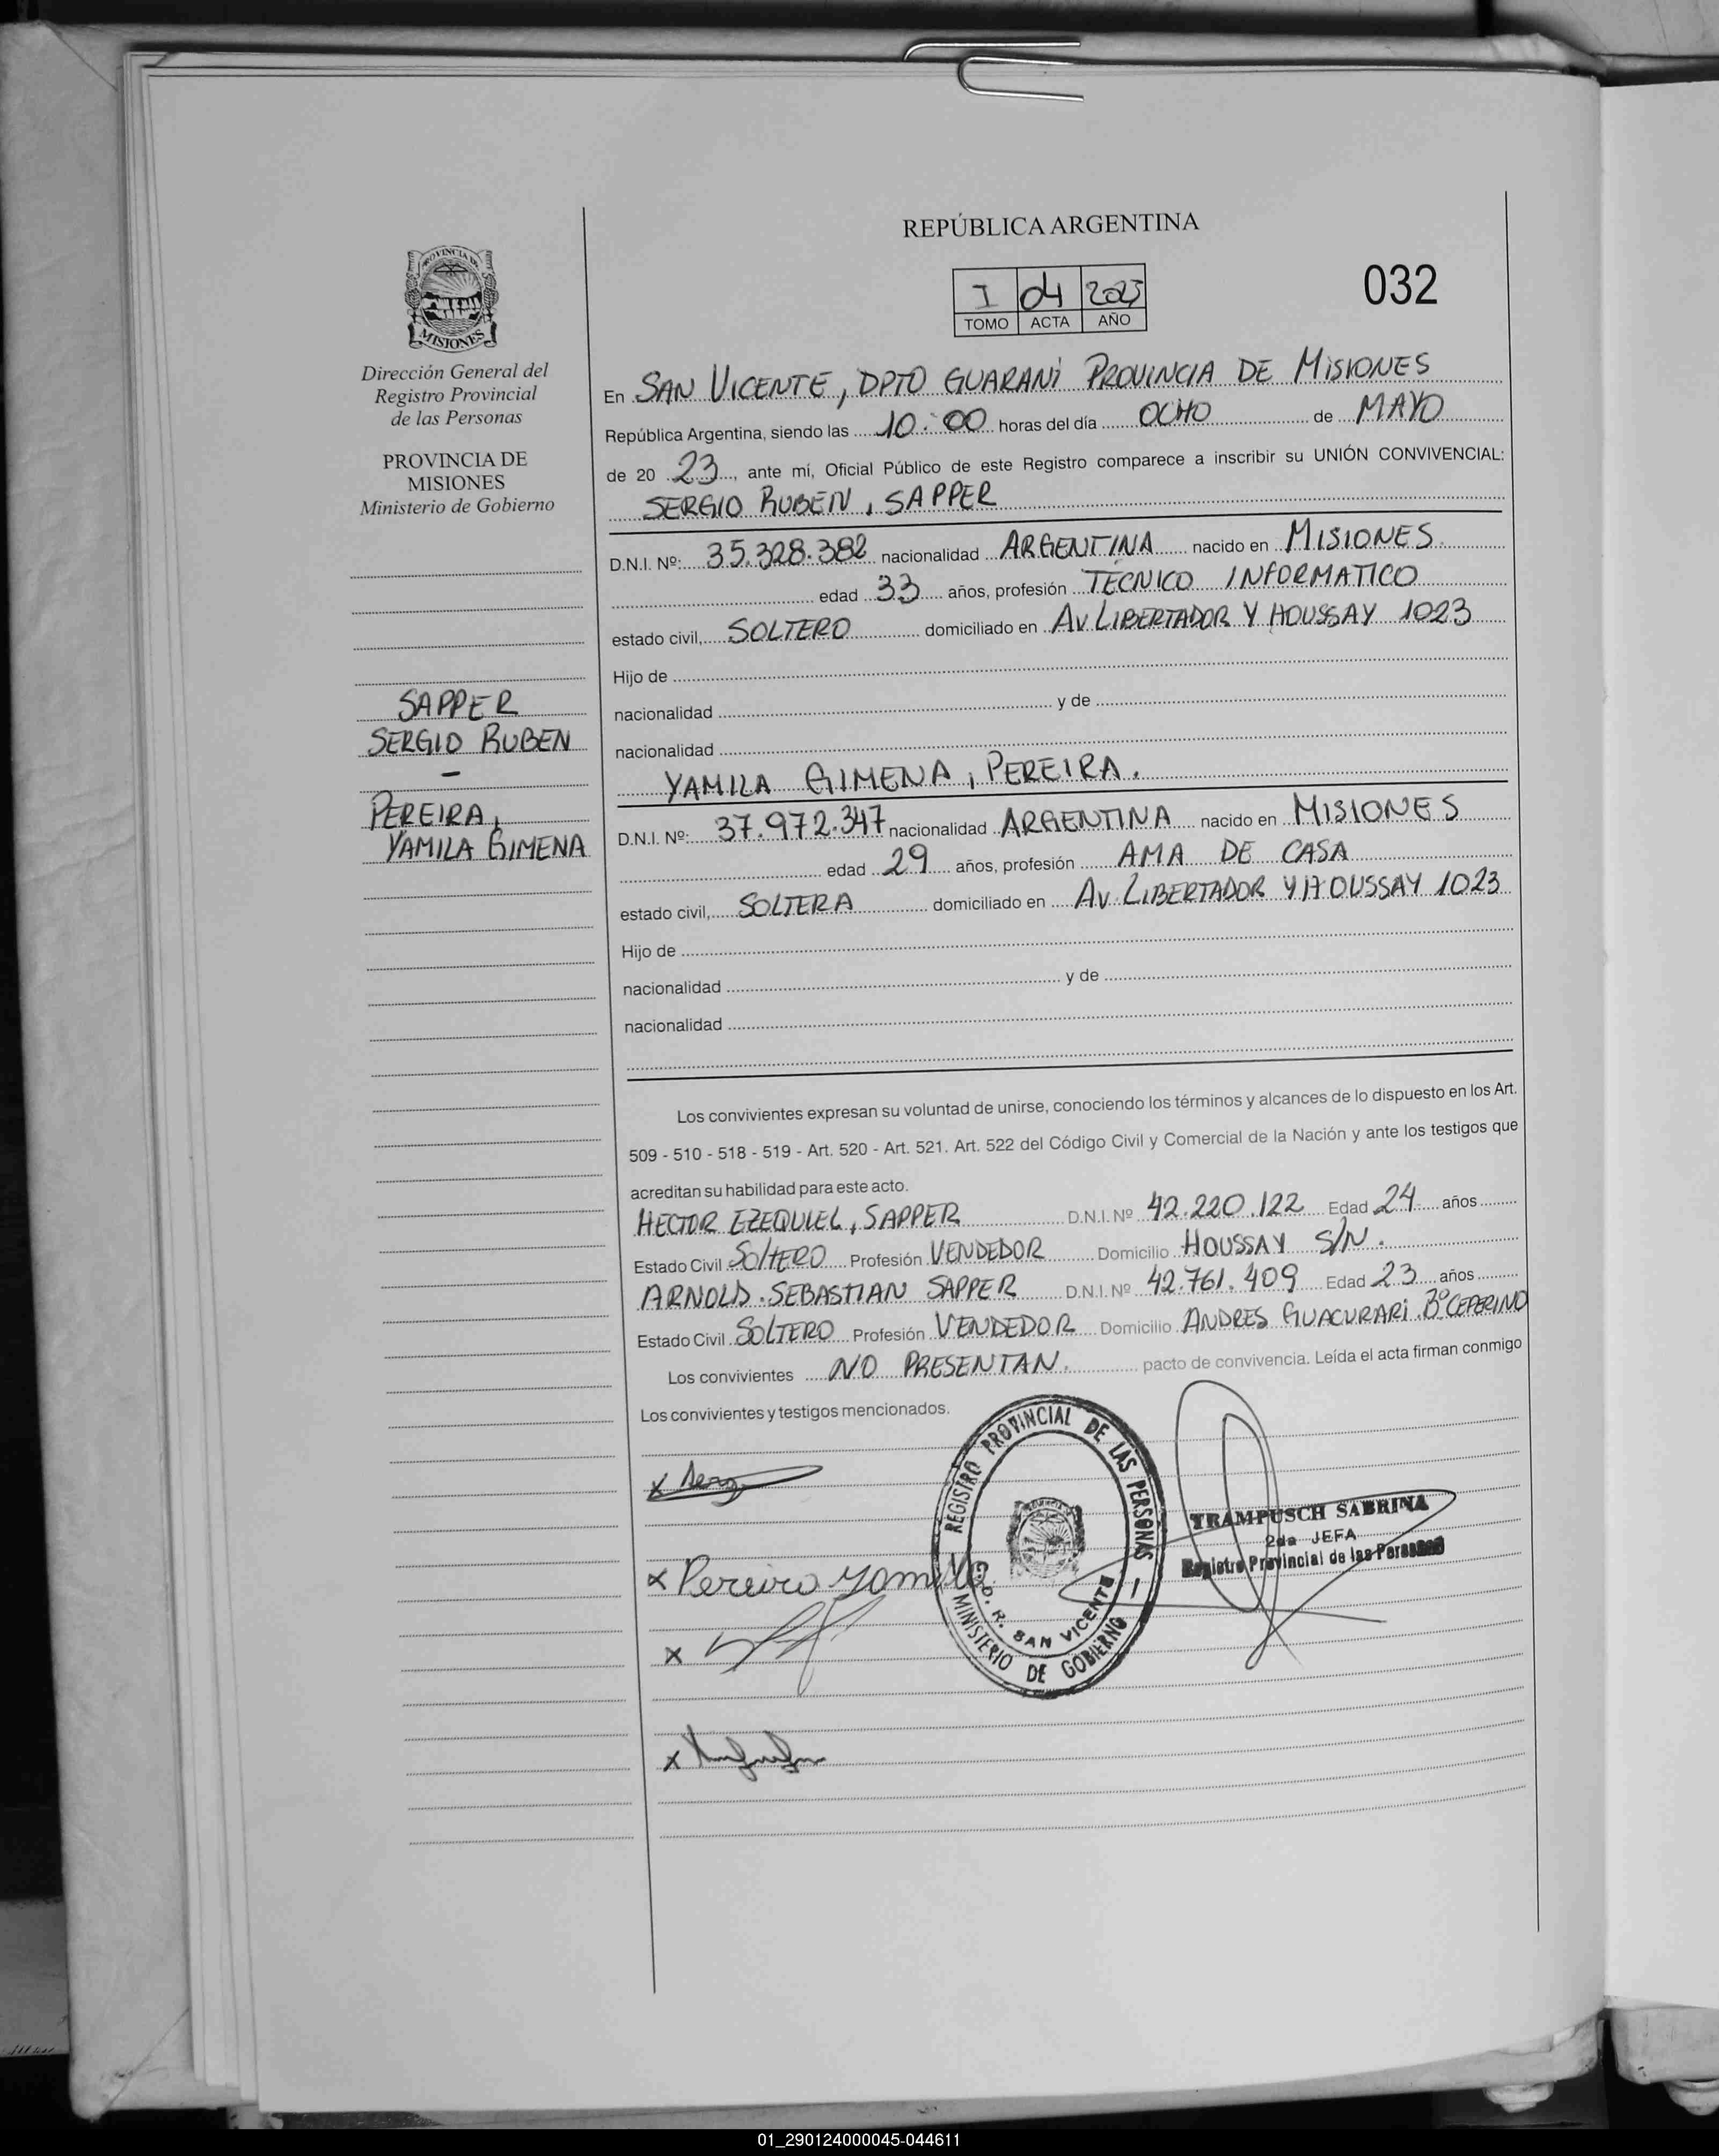 REPÚBLICA ARGENTINA
I 04 2023
TOMO ACTA AÑO
032
PROVINCIA DE
MISIONES
Dirección General del
Registro Provincial
de las Personas
PROVINCIA DE
MISIONES
Ministerio de Gobierno
SAPPER
SERGIO RUBEN
-
PEREIRA,
YAMILA GIMENA
En SAN VICENTE, DPTO GUARANI PROVINCIA DE MISIONES
República Argentina, siendo las 10:00 horas del día OCHO de MAYO
de 20 23, ante mí, Oficial Público de este Registro comparece a inscribir su UNIÓN CONVIVENCIAL:
SERGIO RUBEN, SAPPER
D.N.I. Nº: 35.328.382 nacionalidad ARGENTINA nacido en MISIONES.
edad 33 años, profesión TÉCNICO INFORMATICO
estado civil, SOLTERO domiciliado en AV LIBERTADOR Y HOUSSAY 1023
Hijo de
nacionalidad y de
nacionalidad
YAMILA GIMENA, PEREIRA.
D.N.I. Nº: 37.972.347 nacionalidad ARGENTINA nacido en MISIONES
edad 29 años, profesión AMA DE CASA
estado civil, SOLTERA domiciliado en AV. LIBERTADOR Y HOUSSAY 1023
Hijo de
nacionalidad y de
nacionalidad
Los convivientes expresan su voluntad de unirse, conociendo los términos y alcances de lo dispuesto en los Art.
509 - 510 - 518 - 519 - Art. 520 - Art. 521. Art. 522 del Código Civil y Comercial de la Nación y ante los testigos que
acreditan su habilidad para este acto.
HECTOR EZEQUIEL, SAPPER D.N.I. Nº 42.220.122 Edad 24 años
Estado Civil SOLTERO Profesión VENDEDOR Domicilio HOUSSAY S/N.
ARNOLD. SEBASTIAN SAPPER D.N.I. Nº 42.761.409 Edad 23 años
Estado Civil SOLTERO Profesión VENDEDOR Domicilio ANDRES GUACURARI Bº CEFERINO
Los convivientes NO PRESENTAN. pacto de convivencia. Leída el acta firman conmigo
Los convivientes y testigos mencionados.
x
REGISTRO PROVINCIAL DE LAS PERSONAS
MINISTERIO DE GOBIERNO
SAN VICENTE
TRAMPUSCH SABRINA
2da JEFA
Registro Provincial de las Personas
x Pereira Yamila
x
x
01_290124000045-044611